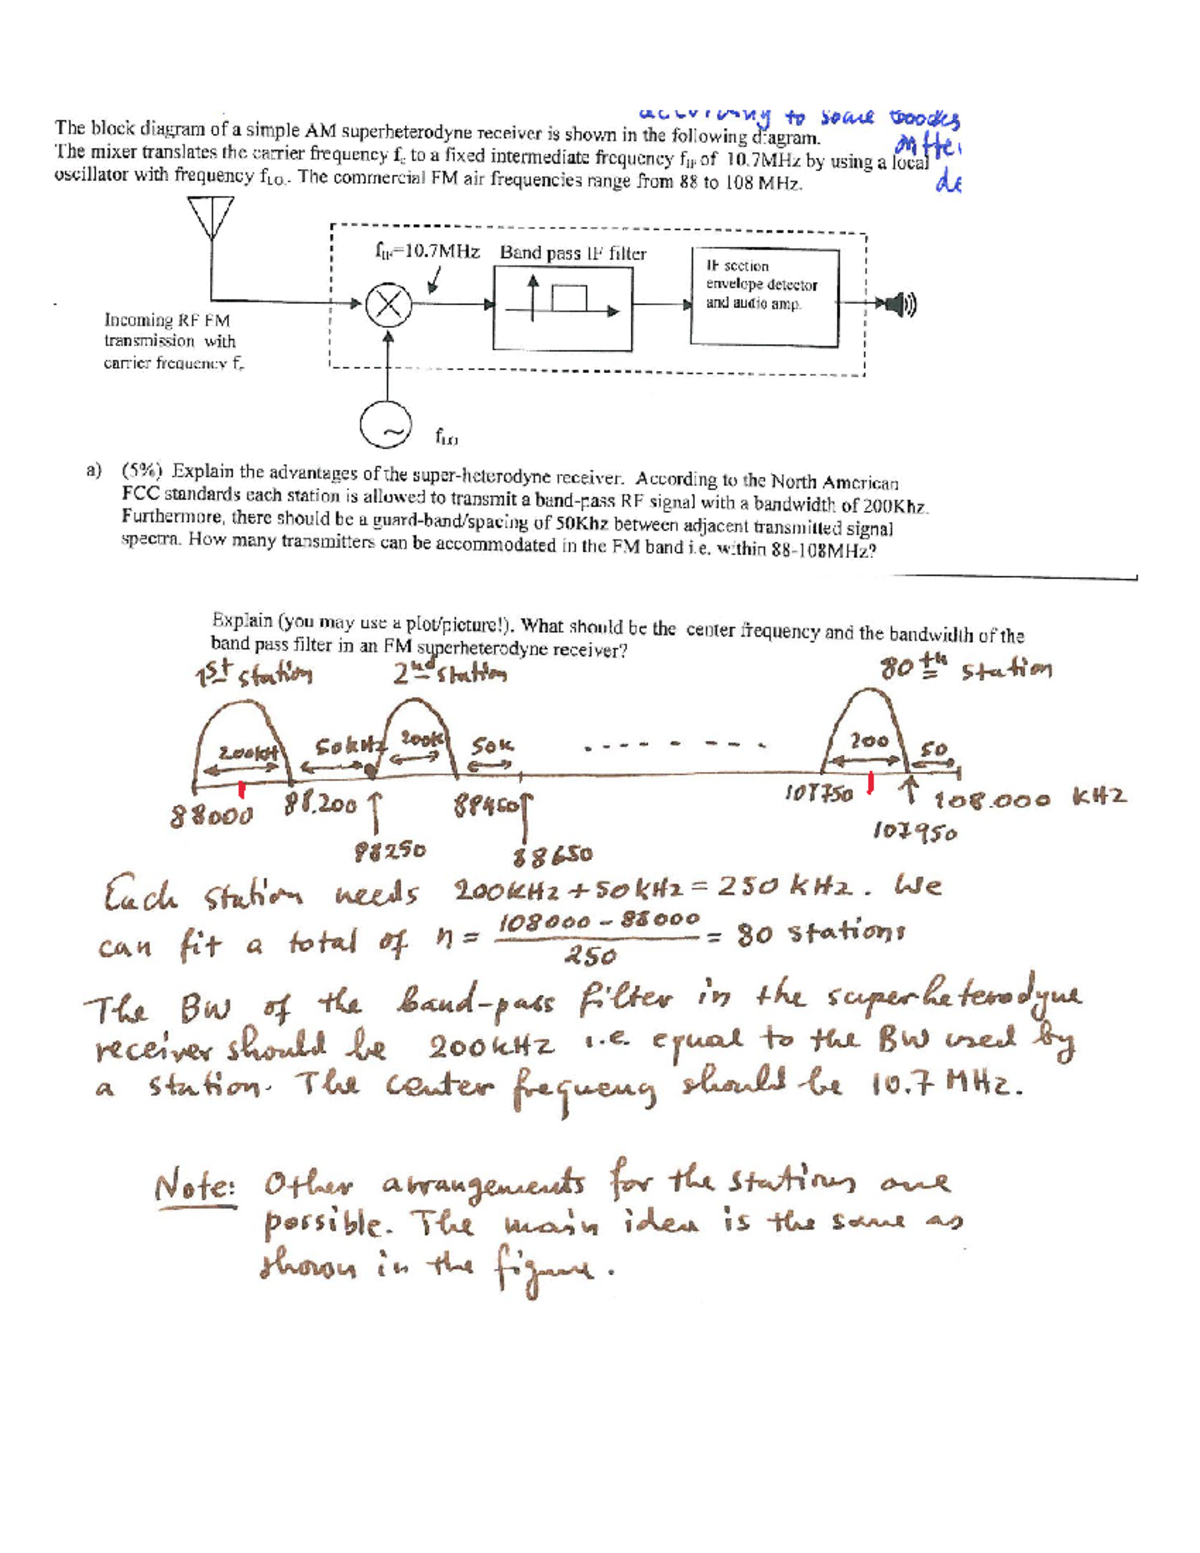 according to some books
The block diagram of a simple AM superheterodyne receiver is shown in the following diagram.
The mixer translates the carrier frequency fc to a fixed intermediate frequency fIF of 10.7MHz by using a local
oscillator with frequency fLO. The commercial FM air frequencies range from 88 to 108 MHz.
fIF=10.7MHz Band pass IF filter
IF section
envelope detector
and audio amp.
Incoming RF FM
transmission with
carrier frequency fc
fLO
a) (5%) Explain the advantages of the super-heterodyne receiver. According to the North American
FCC standards each station is allowed to transmit a band-pass RF signal with a bandwidth of 200Khz.
Furthermore, there should be a guard-band/spacing of 50Khz between adjacent transmitted signal
spectra. How many transmitters can be accommodated in the FM band i.e. within 88-108MHz?
Explain (you may use a plot/picture!). What should be the center frequency and the bandwidth of the
band pass filter in an FM superheterodyne receiver?
1st station 2nd station 80th station
200kH 50kHz 200k 50k 200 50
88000 88.200 88450 107750 108.000 KHz
88250 88650 107950
Each station needs 200kHz + 50kHz = 250 kHz. We
can fit a total of n = 108000 - 88000 / 250 = 80 stations
The BW of the band-pass filter in the superheterodyne
receiver should be 200kHz i.e. equal to the BW used by
a station. The center frequency should be 10.7 MHz.
Note: Other arrangements for the stations are
possible. The main idea is the same as
shown in the figure.